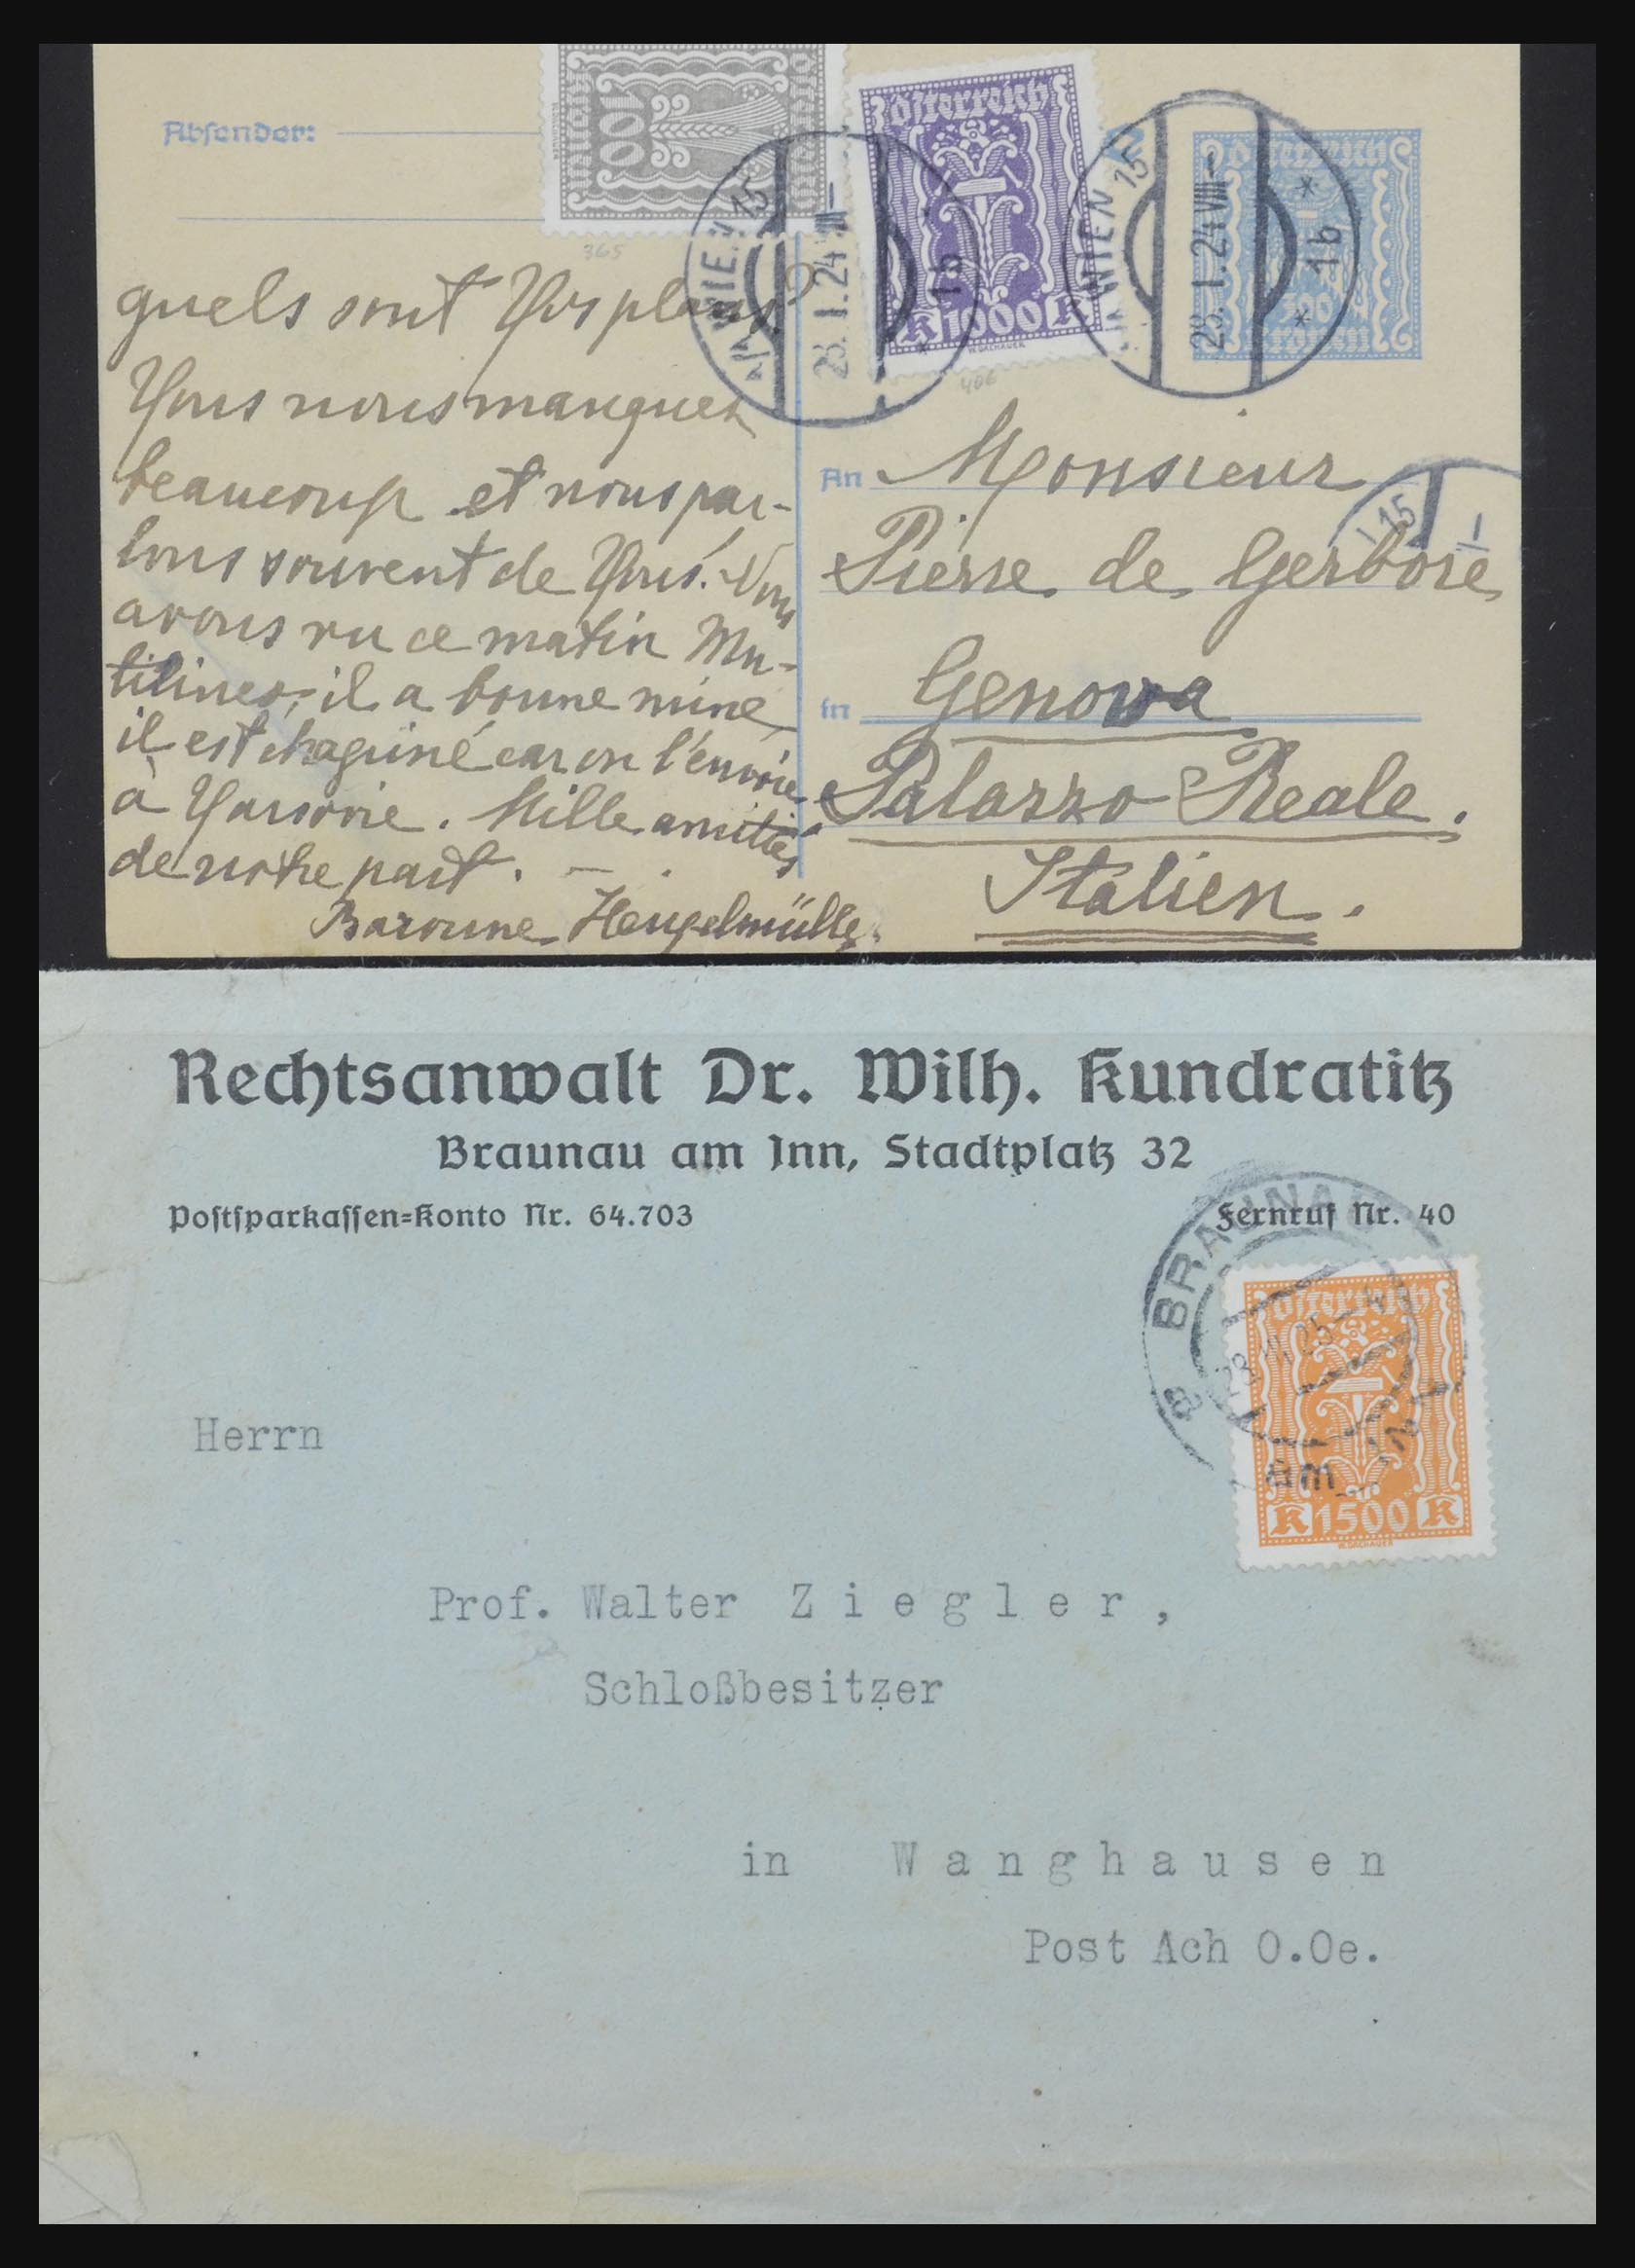 Absender:
österreich
100
österreich
365
österreich
K 1000 K
W. DACHAUER
406
WIEN 15
28. I. 24 VIII
1b
WIEN 15
28. I. 24 VIII
* 1b *
quels sont Vos plans?
Vous nous manquez
beaucoup et nous par-
lons souvent de Vous. Nous
avons vu ce matin Mu-
tilineo, il a bonne mine,
il est chagriné car on l'envoie
à Varsovie. Mille amitiés
de notre part. —
Baronne Hengelmüller
15
An Monsieur
Pierre de Gerbore
in Genova
Palazzo Reale.
Italien.
Rechtsanwalt Dr. Wilh. Kundratitz
Braunau am Inn, Stadtplatz 32
Postsparkassen=Konto Nr. 64.703
Fernruf Nr. 40
BRAUNAU
am
a
österreich
K 1500 K
W. DACHAUER
Herrn
Prof. Walter Ziegler,
Schloßbesitzer
in Wanghausen
Post Ach O.Oe.